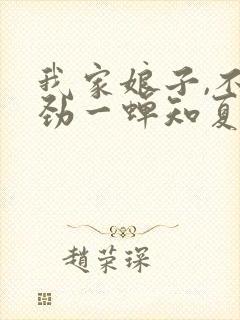 我家娘子,不
劲一蝉知夏
趙荣琛